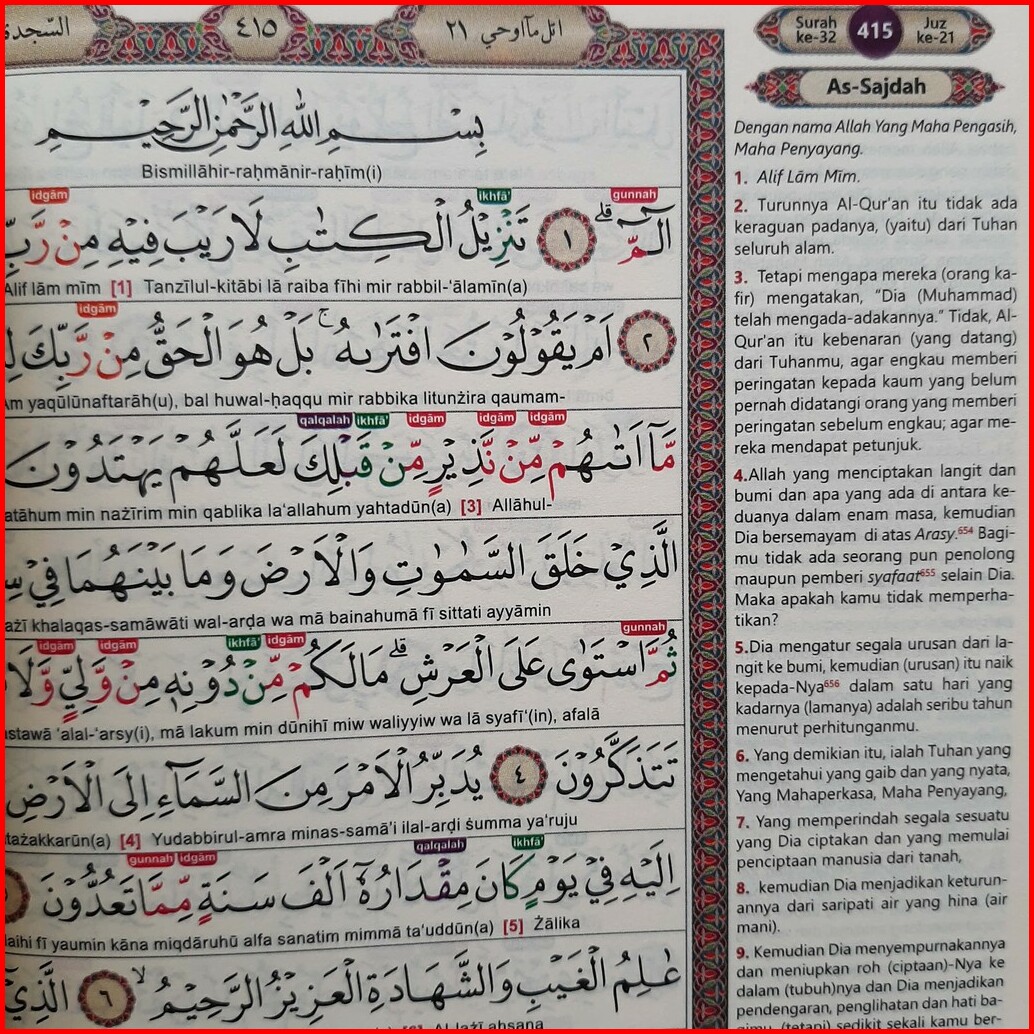 السّجدة
٤١٥
اتل مآ اوحي ٢١
بِسْمِ اللّٰهِ الرَّحْمٰنِ الرَّحِيْمِ
Bismillāhir-raḥmānir-raḥīm(i)
idgām ikhfā' gunnah
الۤمّۤ ۗ ١ تَنْزِيْلُ الْكِتٰبِ لَا رَيْبَ فِيْهِ مِنْ رَّبِّ
Alif lām mīm [1] Tanzīlul-kitābi lā raiba fīhi mir rabbil-'ālamīn(a)
idgām
٢ اَمْ يَقُوْلُوْنَ افْتَرٰىهُ ۚ بَلْ هُوَ الْحَقُّ مِنْ رَّبِّكَ
Am yaqūlūnaftarāh(u), bal huwal-ḥaqqu mir rabbika litunżira qaumam-
qalqalah ikhfā' idgām idgām idgām
مَّآ اَتٰىهُمْ مِّنْ نَّذِيْرٍ مِّنْ قَبْلِكَ لَعَلَّهُمْ يَهْتَدُوْنَ
atāhum min nażīrim min qablika la'allahum yahtadūn(a) [3] Allāhul-
الَّذِيْ خَلَقَ السَّمٰوٰتِ وَالْاَرْضَ وَمَا بَيْنَهُمَا فِيْ
ażī khalaqas-samāwāti wal-arḍa wa mā bainahumā fī sittati ayyāmin
idgām idgām ikhfā' idgām gunnah
ثُمَّ اسْتَوٰى عَلَى الْعَرْشِ ۗ مَا لَكُمْ مِّنْ دُوْنِهٖ مِنْ وَّلِيٍّ وَّلَا
stawā 'alal-'arsy(i), mā lakum min dūnihī miw waliyyiw wa lā syafī'(in), afalā
تَتَذَكَّرُوْنَ ٤ يُدَبِّرُ الْاَمْرَ مِنَ السَّمَاۤءِ اِلَى الْاَرْضِ
tażakkarūn(a) [4] Yudabbirul-amra minas-samā'i ilal-arḍi ṡumma ya'ruju
gunnah idgām qalqalah ikhfā'
اِلَيْهِ فِيْ يَوْمٍ كَانَ مِقْدَارُهٗٓ اَلْفَ سَنَةٍ مِّمَّا تَعُدُّوْنَ
laihi fī yaumin kāna miqdāruhū alfa sanatim mimmā ta'uddūn(a) [5] Żālika
عٰلِمُ الْغَيْبِ وَالشَّهَادَةِ الْعَزِيْزُ الرَّحِيْمُ ۙ ٦ الَّذِيْ
Al-lażī aḥsana
Surah ke-32 415 Juz ke-21
As-Sajdah
Dengan nama Allah Yang Maha Pengasih,
Maha Penyayang.
1. Alif Lām Mīm.
2. Turunnya Al-Qur'an itu tidak ada
keraguan padanya, (yaitu) dari Tuhan
seluruh alam.
3. Tetapi mengapa mereka (orang ka-
fir) mengatakan, "Dia (Muhammad)
telah mengada-adakannya." Tidak, Al-
Qur'an itu kebenaran (yang datang)
dari Tuhanmu, agar engkau memberi
peringatan kepada kaum yang belum
pernah didatangi orang yang memberi
peringatan sebelum engkau; agar me-
reka mendapat petunjuk.
4.Allah yang menciptakan langit dan
bumi dan apa yang ada di antara ke-
duanya dalam enam masa, kemudian
Dia bersemayam di atas Arasy.654 Bagi-
mu tidak ada seorang pun penolong
maupun pemberi syafaat655 selain Dia.
Maka apakah kamu tidak memperha-
tikan?
5.Dia mengatur segala urusan dari la-
ngit ke bumi, kemudian (urusan) itu naik
kepada-Nya656 dalam satu hari yang
kadarnya (lamanya) adalah seribu tahun
menurut perhitunganmu.
6. Yang demikian itu, ialah Tuhan yang
mengetahui yang gaib dan yang nyata,
Yang Mahaperkasa, Maha Penyayang,
7. Yang memperindah segala sesuatu
yang Dia ciptakan dan yang memulai
penciptaan manusia dari tanah,
8. kemudian Dia menjadikan keturun-
annya dari saripati air yang hina (air
mani).
9. Kemudian Dia menyempurnakannya
dan meniupkan roh (ciptaan)-Nya ke
dalam (tubuh)nya dan Dia menjadikan
pendengaran, penglihatan dan hati ba-
gimu, (tetapi) sedikit sekali kamu ber-